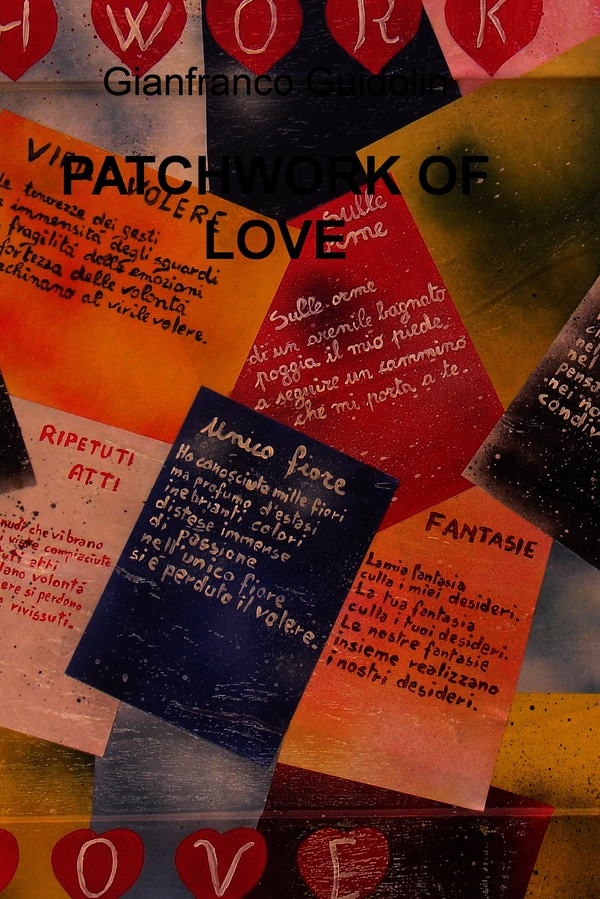 H W O R K
Gianfranco Guidolin
PATCHWORK OF
LOVE
VOLERE
le tenerezze dei gesti
immensità degli sguardi
fragilità delle emozioni
fortezza della volontà
al virile volere.
Sulle
orme
Sulle orme
di un arenile bagnato
poggia il mio piede
a seguire un cammino
che mi porta a te.
RIPETUTI
ATTI
nudi che vibrano
viste compiaciute
atti
volontà
ere si perdono
rivissuti.
Unico fiore
Ho conosciuto mille fiori
ma profumo d'estasi
inebrianti colori
distese immense
di passione
nell'unico fiore
si è perduto il volere.
FANTASIE
La mia fantasia
culla i miei desideri.
La tua fantasia
culla i tuoi desideri.
Le nostre fantasie
insieme realizzano
i nostri desideri.
nel
pensa
nei no
condiv
O V E